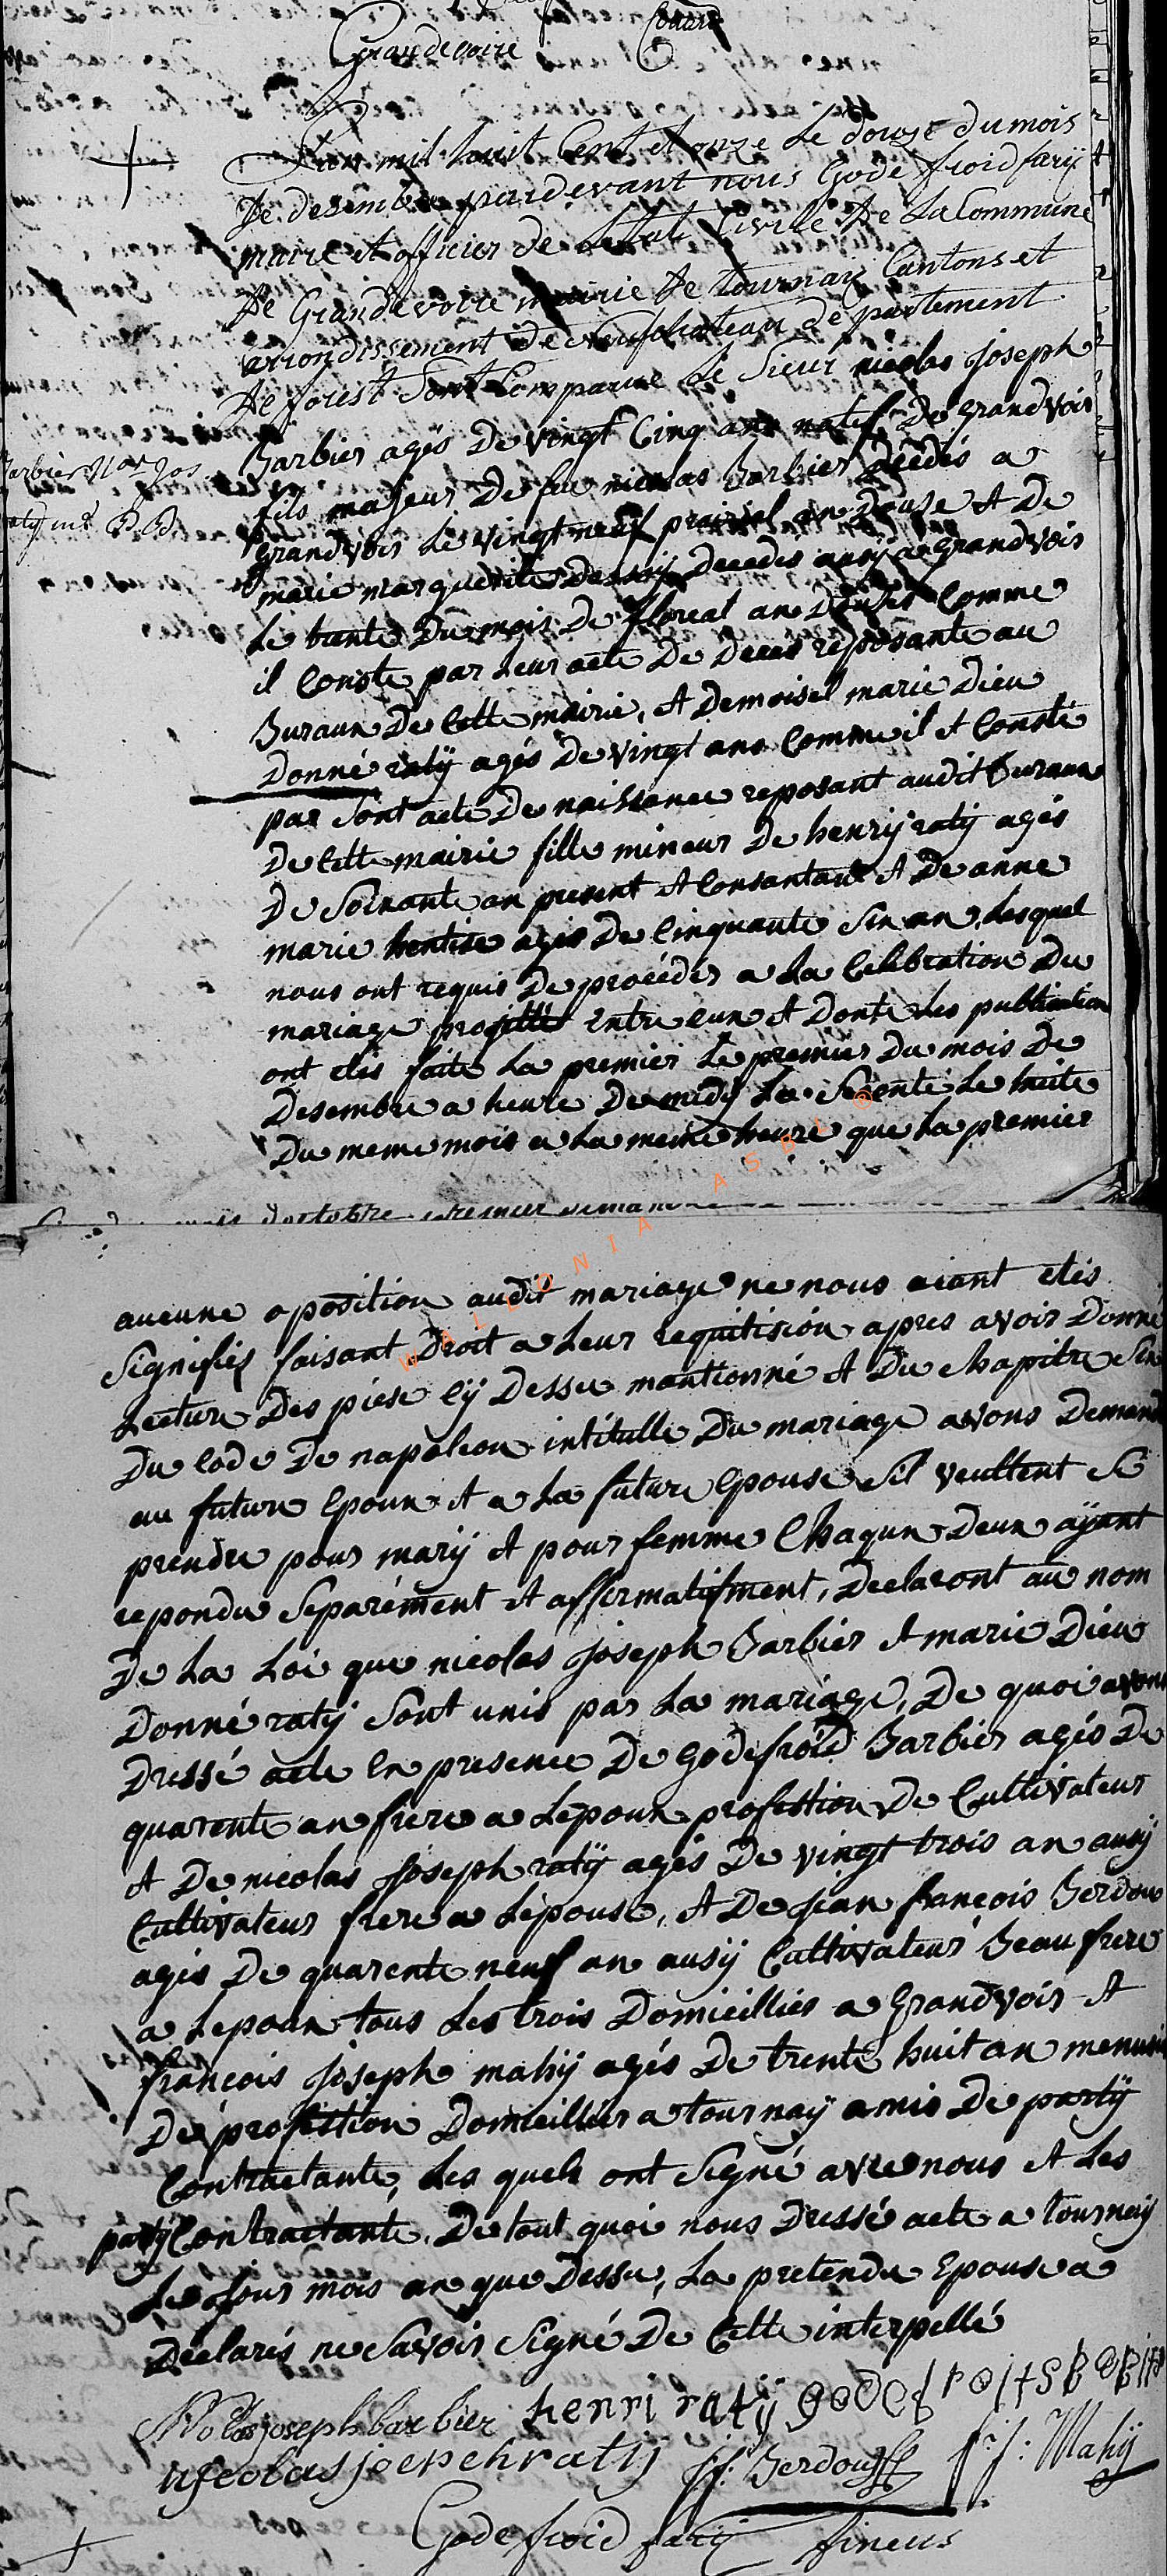 Grandevoire
L'an mil huit Cent et onze le douze du mois
De desembre pardevant nous Gode froid farÿ
maire et officier de Letat Civile De LaCommune
De Grandevoire mairie De tournaiz Cantons et
arrondissement De neufchateau de partement
De forest Sont Comparue Le Sieur nicolas joseph
Barbier agés De vingt Cinq ans natif De grandvoir
Barbier Nas Jos
fils majeur De feu nicolas Barbier décédés a
raty me D. D.
grandvoir Le vingt neuf prairial an Douse et De
marie marguerite Dessoij Decedes ausÿ a Grandvoir
Le trante Du mois De floreal an Douses Comme
il Conste par Leur acte De Deces reposante au
Buraux De Cette mairie, et Demoisel marie Dieu
Donné ratÿ agés De vingt ans Comme il et Consté
par Sont acte De naissance reposant audit Buraux
De Cette mairie fille mineur De henrij ratij agés
De Soixante an present et Consantant et De anne
marie hentise agés De Cinquante Six an, Lesquel
nous ont requis De procéder a La Celebration Du
mariage projetté Entre eux et Donte Les publication
ont etés faite La premier Le premier Du mois De
Desembre a heure De midÿ La Seconte Le huite
Du meme mois a La meme heure que La premier
mois d'octobre premier
aucune oposition audit mariage ne nous aiant etés
Signifiés faisant Droit a Leur requitision apres avoir Donné
Lecture Des piese Cÿ Dessu mantionné et Du chapitre Six
Du Code De napoleon intitulle Du mariage avons Demand
au future Epoux et a La future Epouse Sil veultent Se
prendre pour marÿ et pour femme Chaqun Deux aÿant
repondu Separément et affirmatifment, Declaront au nom
De La Loi que nicolas joseph Barbier et marie Dieu
Donné ratij Sont unis par La mariage, De quoi avons
Dressé acte En presence De godefroid Barbier agés De
quarente an frere a Lepoux profession De Cultivateur
et De nicolas Joseph ratÿ agés De vingt trois an ausij
Cultivateur frere a Lépouse, et De jean françois Berdoux
agés De quarente neuf an ausij Cultivateur Beau frere
a Lepoux tous Les trois Domicilliés a Grandvoir et
françois joseph mahij agés De trente huit an menusi
De profession Domicillier a tournaÿ amis De partÿ
Contractante, Les quels ont Signé avec nous et Les
partÿ Contractante, De tout quoi nous Dressé acte a tournaij
Le Jour mois an que Dessu, La pretendu Epouse a
Déclarés ne Savoir Signé De Cette interpellé
Nicolas joseph barbier henri ratij
nicolas joepeh ratij J.f. Berdoux f: j: Mahij
Gode froid farij
WALLONIA ASBL ®